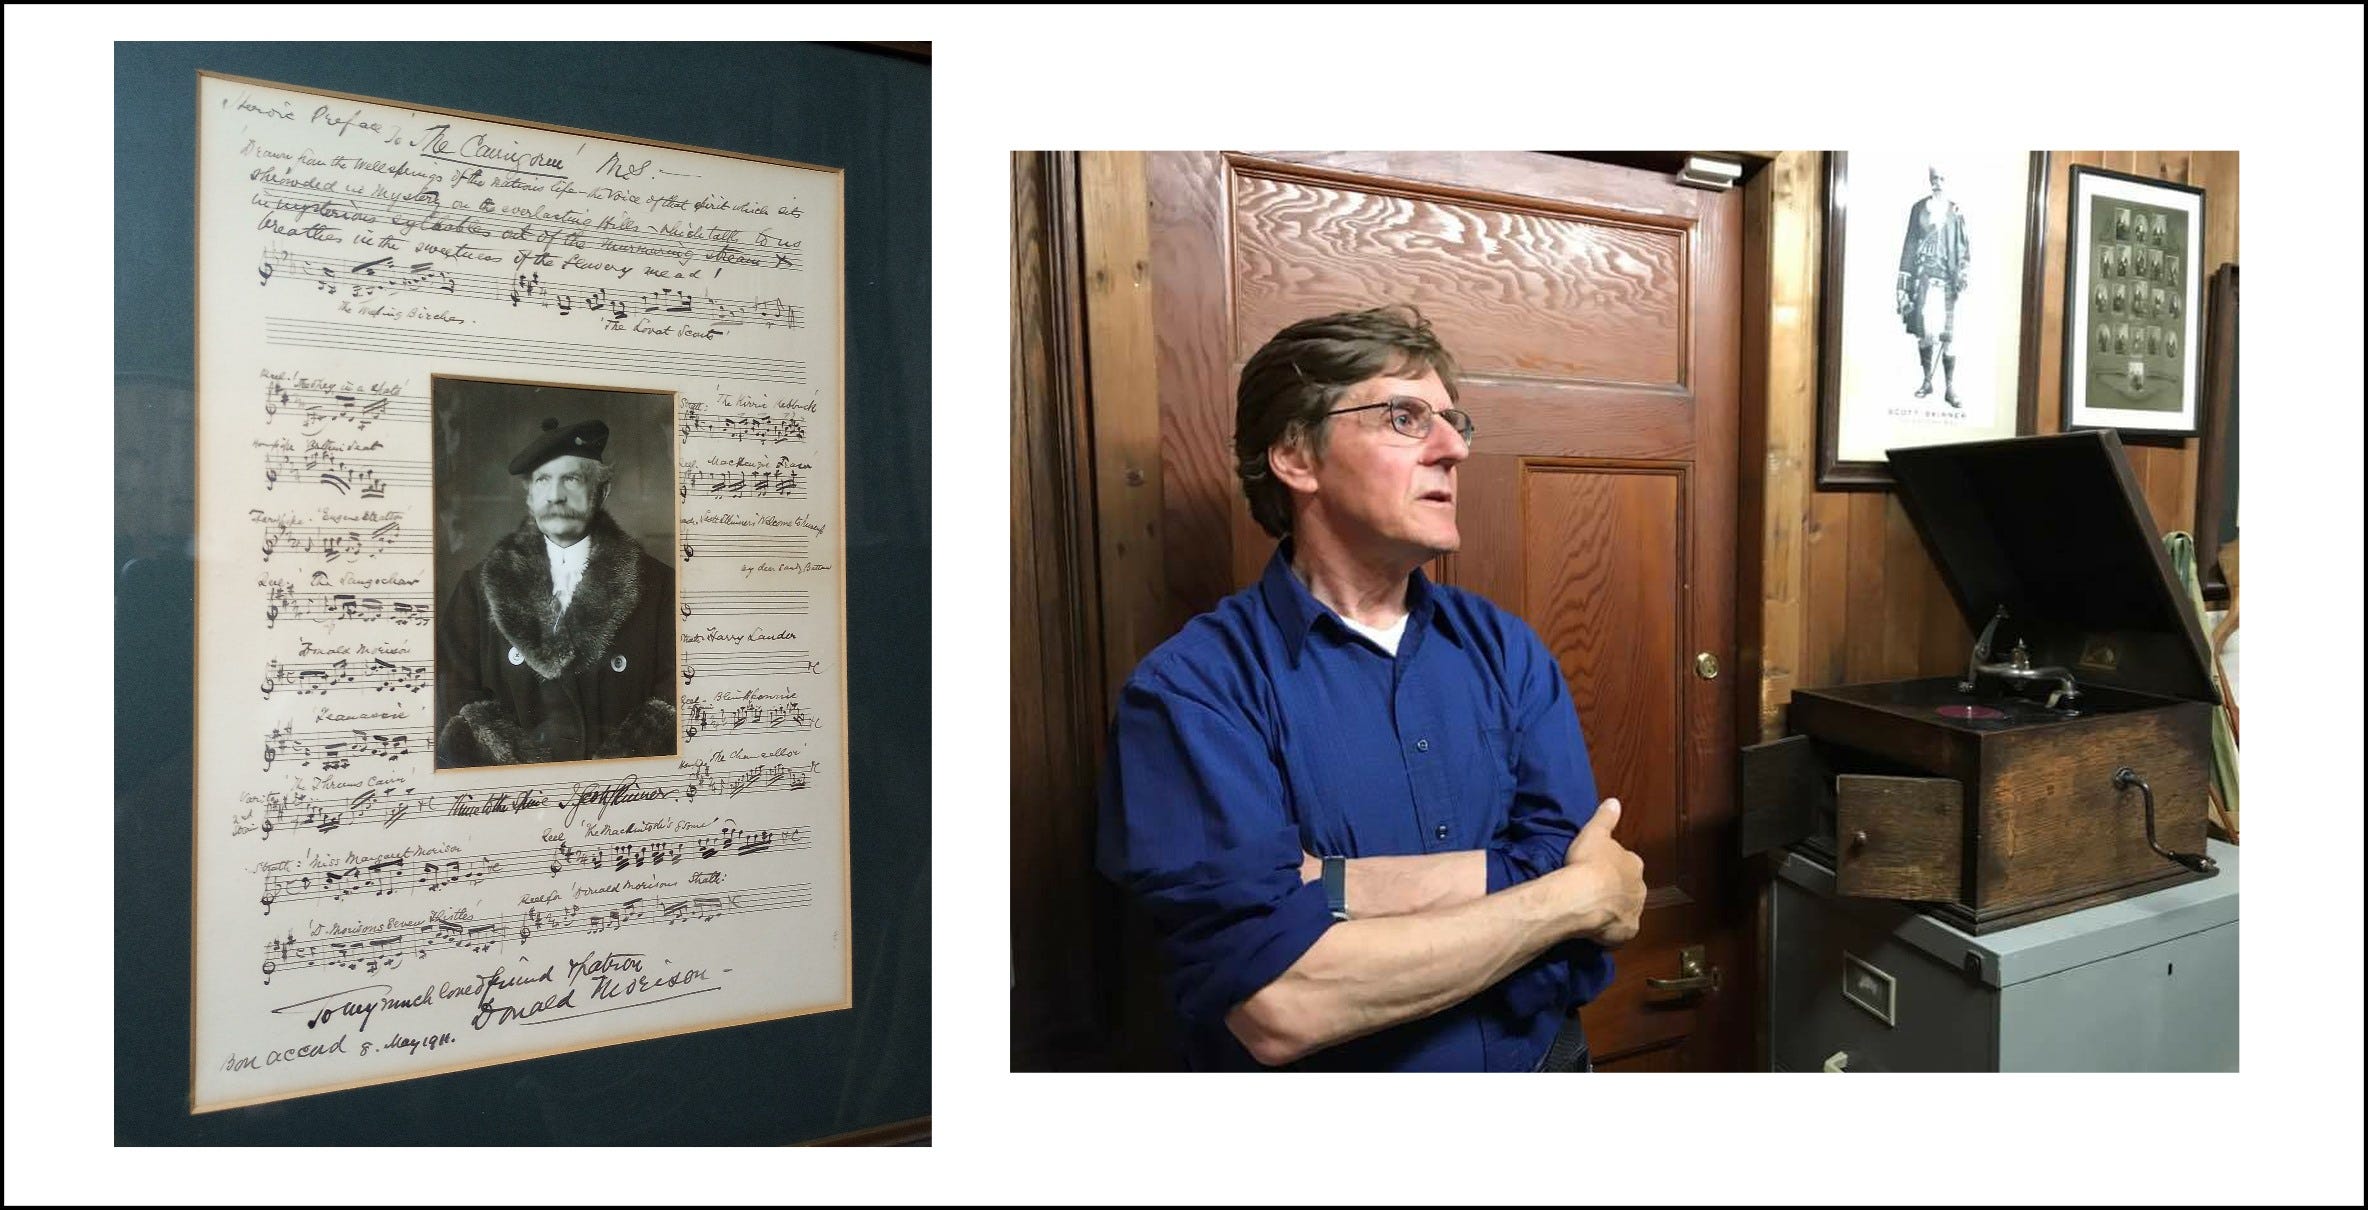 Heroic Preface to 'The Cairngorm' MS.—
'Drawn from the Wellsprings of the nations life – the Voice of that spirit which sits
shrowded in Mystery on the everlasting Hills – which talks to us
in mysterious syllables out of the murmuring stream &
breathes in the sweetness of the flowery mead!
The Weeping Birches.
'The Lovat Scouts'
Reel.
Strath: 'The Kirrie Kebbuck'
Hornpipe
Reel. MacKenzie Fraser
Hornpipe. 'Eugene Stratton'
Scott Skinner's Welcome to
by dear Sandy
Reel:
Strath: Harry Lauder
'Donald Morison'
Blinkbonnie
'The Chancellor'
'The Thrums Cairn'
Variation
2nd
Strain
Thine to the Spine J. Scott Skinner.
Reel 'The Mackintosh's
Strath: 'Miss Margaret Morison'
Reel for 'Donald Morisons Strath:
'D. Morisons Seven Thistles'
To my much loved friend & patron
Donald Morison –
Bon accord 8. May 1911.
SCOTT SKINNER